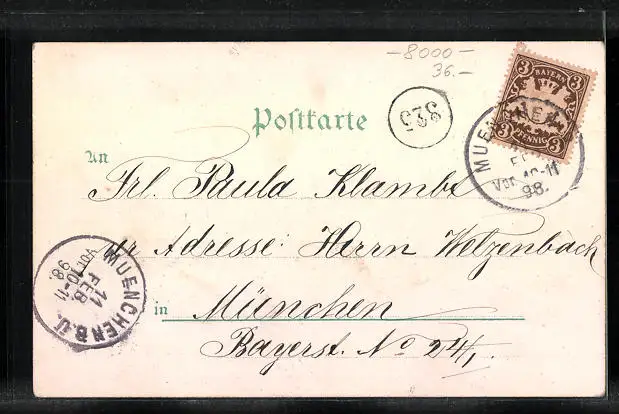 -8000-
36.-
3 BAYERN 3
3 PFENNIG 3
Postkarte
323
MUENCHEN
Vor. 10-11
98.
An
Frl. Paula Klambt
ur Adresse: Herrn Welzenbach
MUENCHEN B.Ü.
11
FEB.
VOR. 10-11
98.
in München
Bayerst. No 24/1.